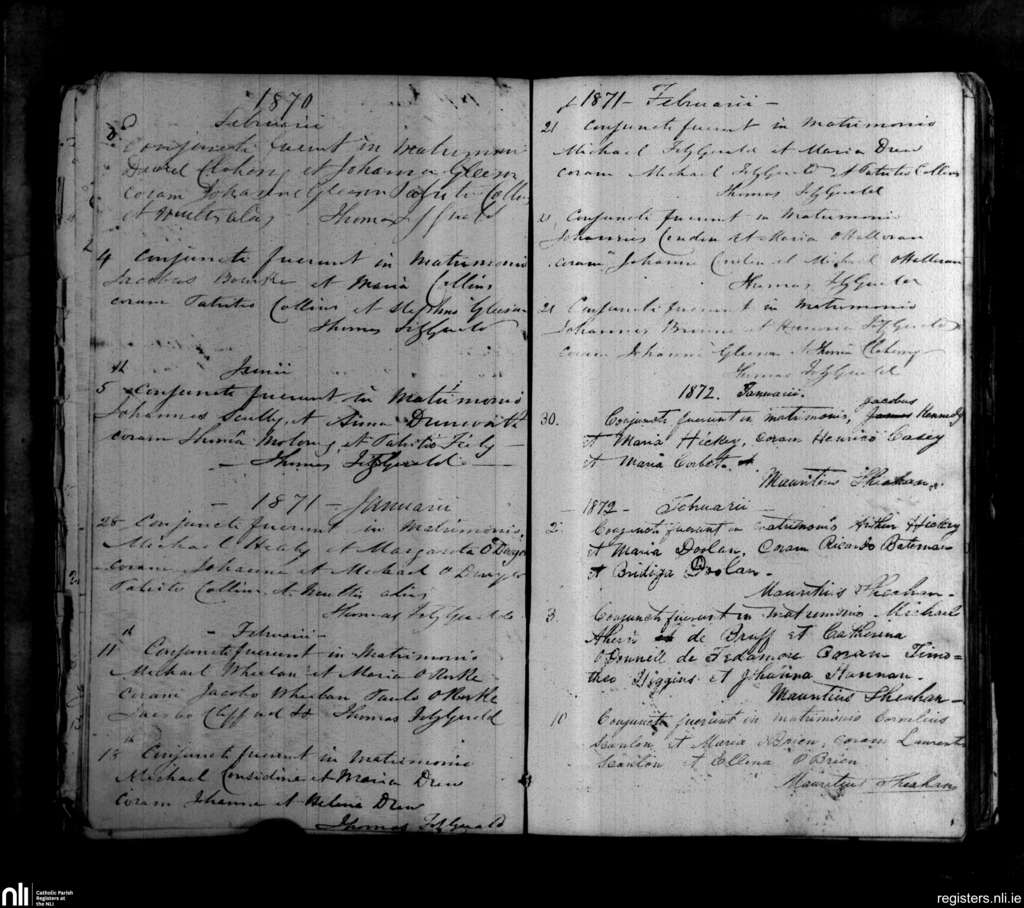 1870
Februarii
8. Conjuncti fuerunt in Matrimon
David Clohesy et Johanna Gleeson
coram Johanne Gleeson Patritio Collins
et Multis aliis Thomas FitzGerald
4 Conjuncti fuerunt in Matrimonio
Jacobus Bourke et Maria Collins
coram Patritio Collins et Stephno Gleeson
Thomas FitzGerald
th Junii
5 Conjuncti fuerunt in Matrimonio
Johannes Scully, et Anna Dunworth
coram Thoma Molony et Patritio Feely
Thomas FitzGerald
- 1871 - Januarii
28 Conjuncti fuerunt in Matrimonio
Michael Healy et Margarita O'Dwyer
coram Johanne et Michael O Dwyer
Patritio Collins et Multis aliis
Thomas FitzGerald
th - Februarii -
11 Conjuncti fuerunt in Matrimonio
Michael Whelan et Maria O'Rorke
coram Jacobo Whelan Paulo O'Rorke
Jacobo Clifford &c Thomas FitzGerald
th
15 Conjuncti fuerunt in Matrimonio
Michael Considine et Maria Drew
coram Johanne et Helena Drew
Thomas FitzGerald
1871 - Februarii -
21 Conjuncti fuerunt in Matrimonio
Michael FitzGerald et Maria Drew
coram Michael FitzGerald et Patritio Collins
Thomas FitzGerald
21 Conjuncti fuerunt in Matrimonio
Johannes et Maria O'Halloran
coram Johanne et Michael O'Halloran
Thomas FitzGerald
21 Conjuncti fuerunt in Matrimonio
Johannes et Hanoria FitzGerald
coram Johanne Gleeson et Thoma Clohessy
Thomas FitzGerald
1872. Januarii.
30. Conjuncti fuerunt in matrimonio, Jacobus James Kennedy
et Maria Hickey, coram Henrico Casey
et Maria Corbet.
Mauritius Sheahan.
1872 - Februarii
2. Conjuncti fuerunt in matrimonio Arthur Hickey
et Maria Doolan, Coram Ricardo Bateman
et Bridiga Doolan -
Mauritius Sheahan -
3. Conjuncti fuerunt in matrimonio Michael
Ahern de Bruff et Catherina
O'Donnell de Fedamore Coram Timo=
theo Higgins et Johanna Hannan.
Mauritius Sheahan -
10 Conjuncti fuerunt in matrimonio Cornelius
Scanlon, et Maria O'Brien, coram Laurentio
Scanlon et Ellena O'Brien
Mauritius Sheahan
nli
Catholic Parish
Registers at
the NLI
registers.nli.ie